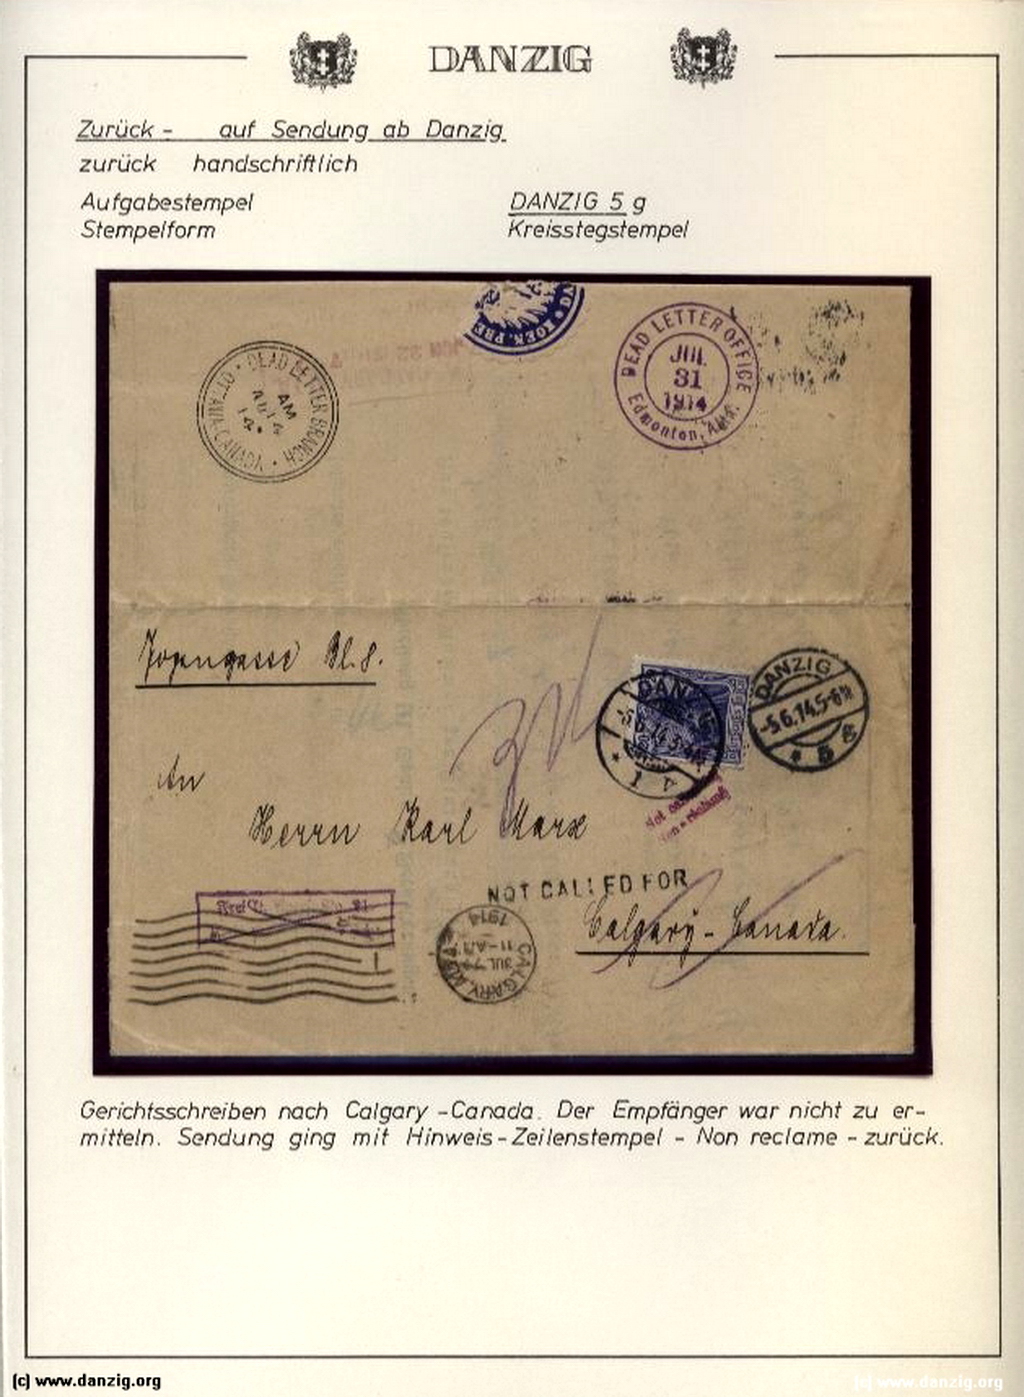 DANZIG
Zurück - auf Sendung ab Danzig
zurück handschriftlich
Aufgabestempel DANZIG 5 g
Stempelform Kreisstegstempel
KOEN. PRE
DEAD LETTER OFFICE
JUL
31
1914
Edmonton, Alta.
DEAD LETTER BRANCH
AM
AU 14
14
OTTAWA-CANADA
Jopengasse Bl. 8.
DANZIG
-5.6.14.5-6N
* 5 g
DANZIG
-5.6.14.3-4N
* 1
An
Herrn Karl Marx
Not
NOT CALLED FOR
Calgary - Canada.
CALGARY
JUL 7
11-AM
1914
Gerichtsschreiben nach Calgary -Canada. Der Empfänger war nicht zu er-
mitteln. Sendung ging mit Hinweis-Zeilenstempel - Non reclame - zurück.
(c) www.danzig.org
(c) www.danzig.org